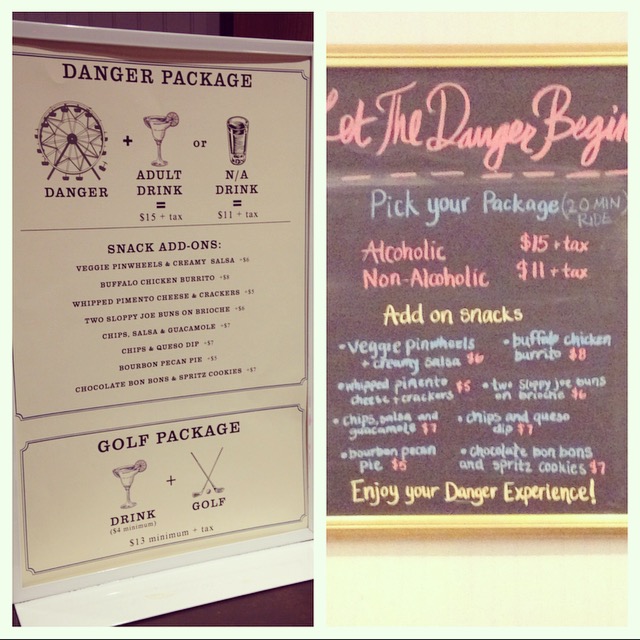 DANGER PACKAGE
+ or
DANGER
ADULT DRINK
N/A DRINK
= =
$15 + tax
$11 + tax
SNACK ADD-ONS:
VEGGIE PINWHEELS & CREAMY SALSA +$6
BUFFALO CHICKEN BURRITO +$8
WHIPPED PIMENTO CHEESE & CRACKERS +$5
TWO SLOPPY JOE BUNS ON BRIOCHE +$6
CHIPS, SALSA & GUACAMOLE +$7
CHIPS & QUESO DIP +$7
BOURBON PECAN PIE +$5
CHOCOLATE BON BONS & SPRITZ COOKIES +$7
GOLF PACKAGE
+
DRINK
($4 minimum)
GOLF
$13 minimum + tax
Let The Danger Begin
Pick your Package (20 MIN RIDE
Alcoholic $15 + tax
Non-Alcoholic $11 + tax
Add on snacks
• veggie pinwheels + creamy salsa $6
• buffalo chicken burrito $8
• whipped pimento cheese + crackers $5
• two sloppy joe buns on brioche $6
• chips, salsa and guacamole $7
• chips and queso dip $7
• bourbon pecan pie $5
• chocolate bon bons and spritz cookies $7
Enjoy your Danger Experience!